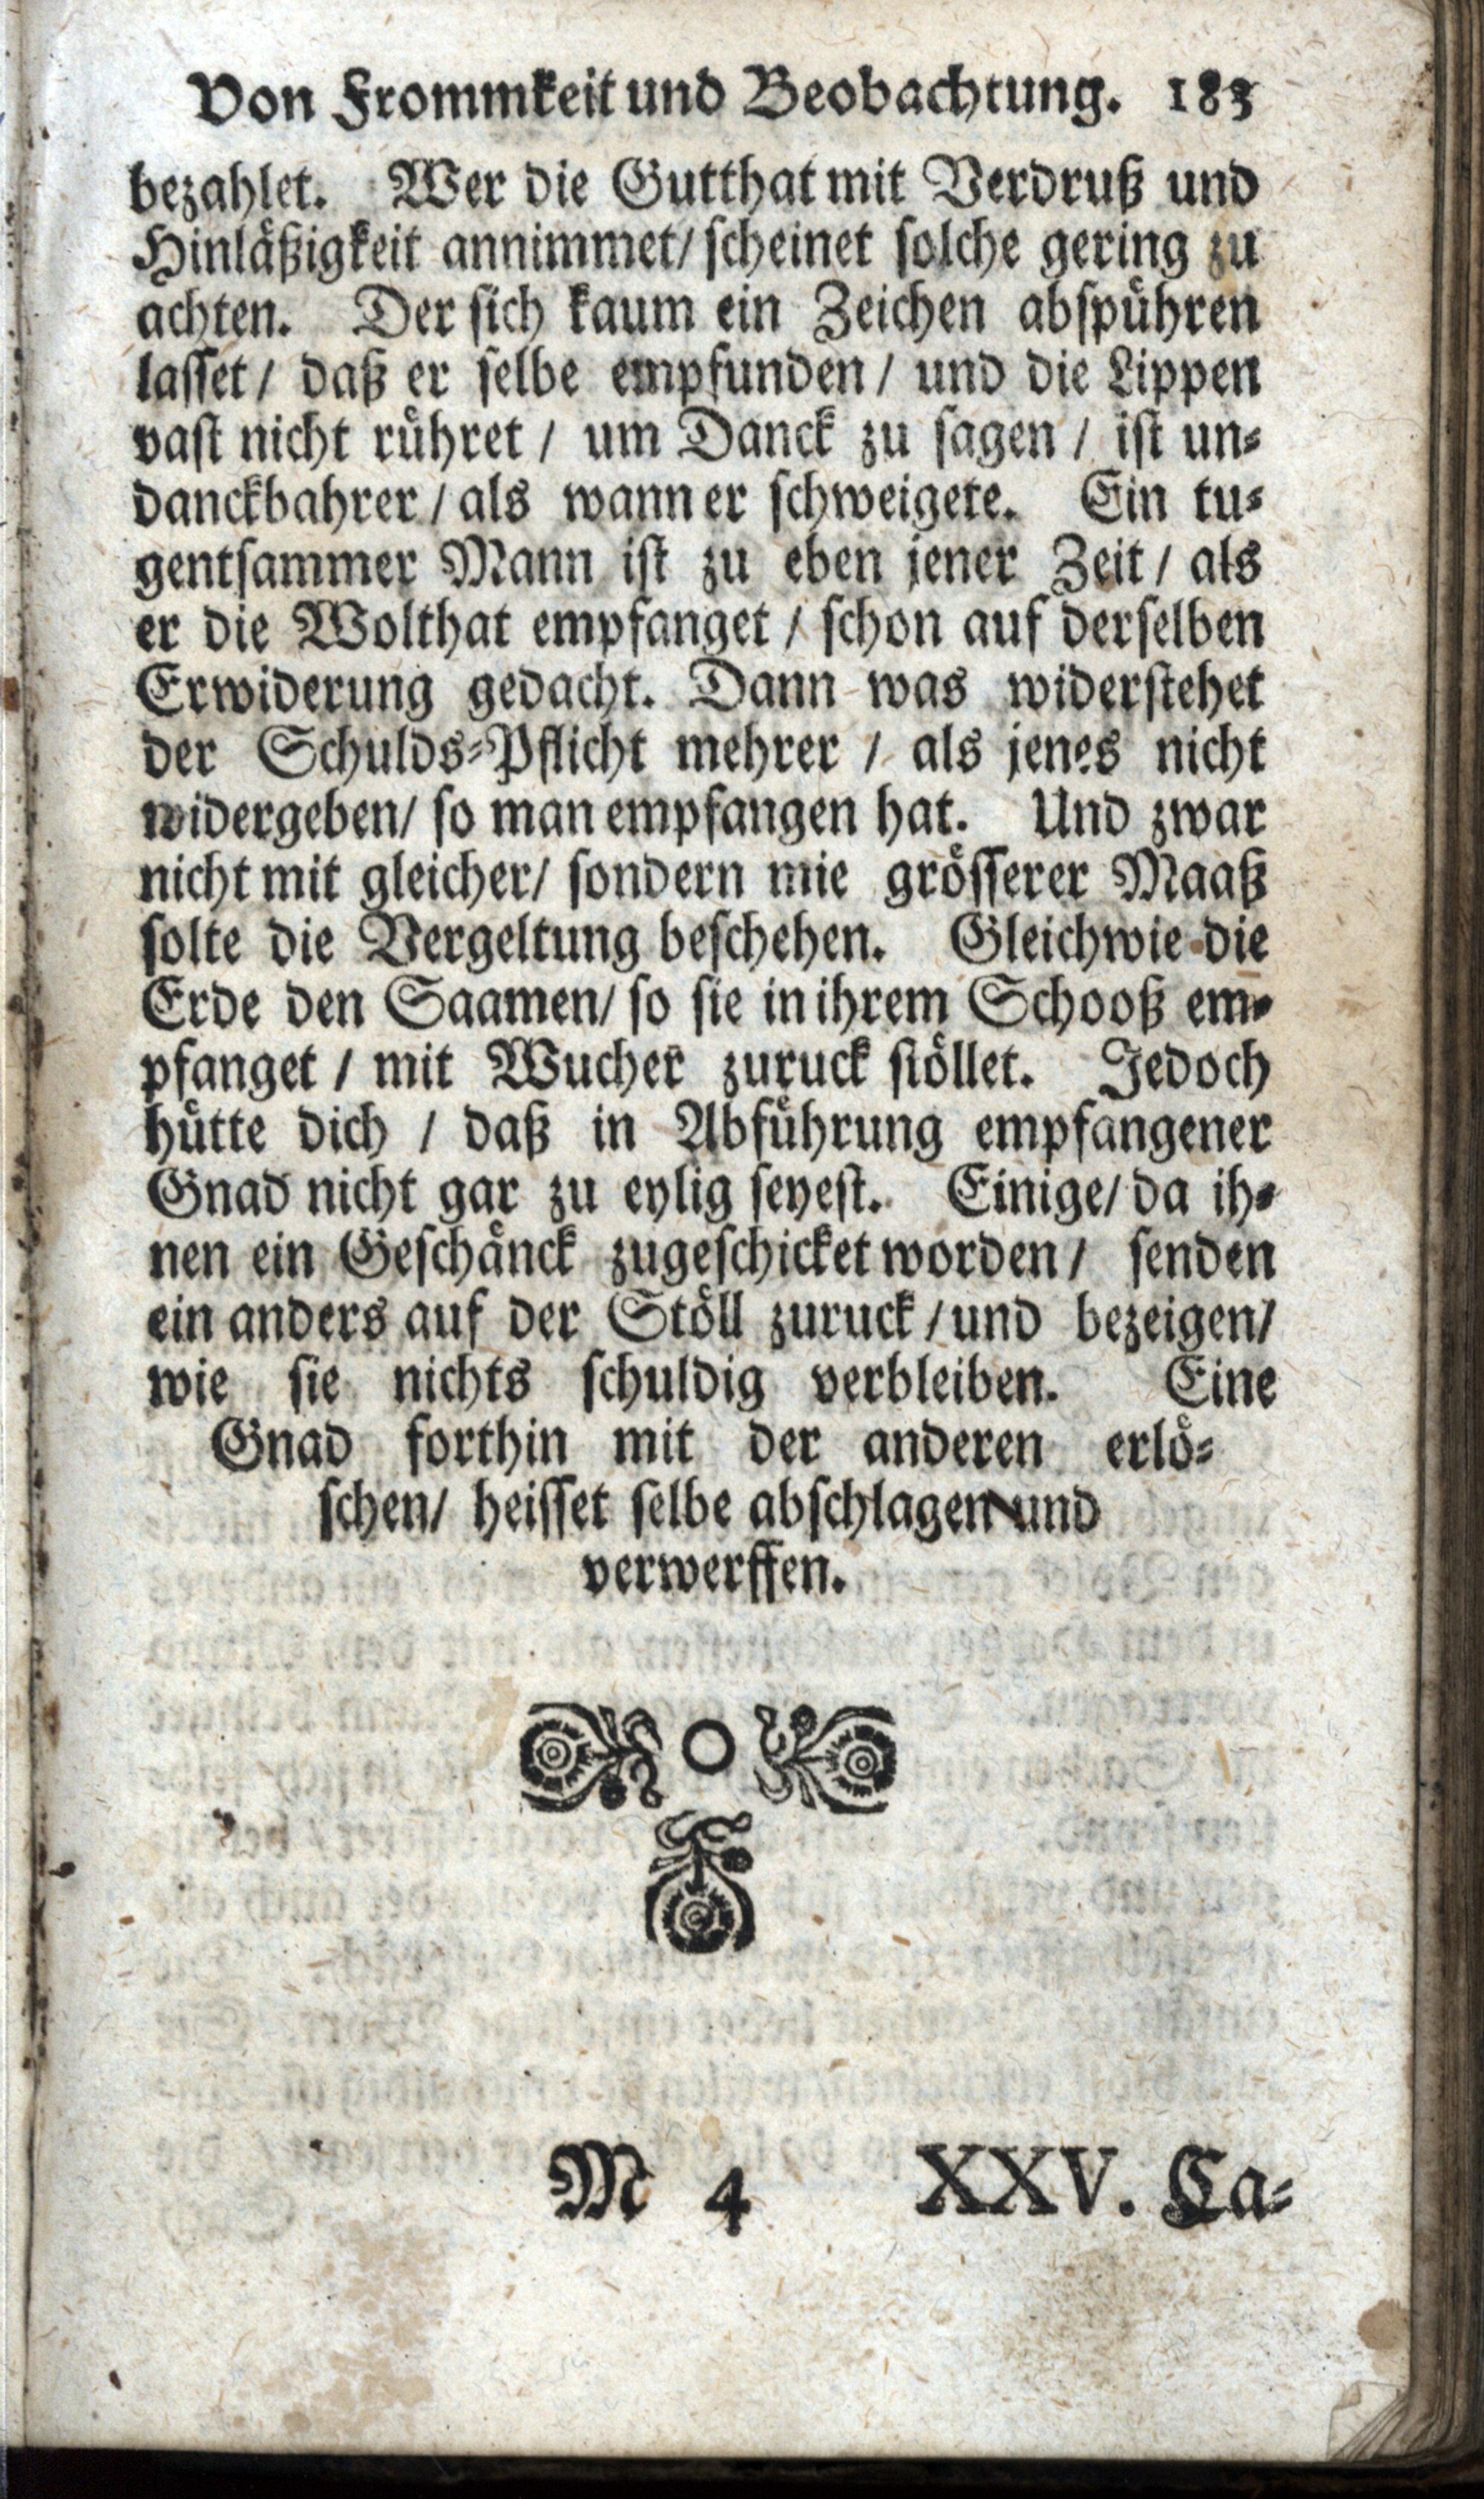 Von Frommkeit und Beobachtung. 183
bezahlet. Wer die Gutthat mit Verdruß und
Hinläßigkeit annimmet/ scheinet solche gering zu
achten. Der sich kaum ein Zeichen abspühren
lasset / daß er selbe empfunden / und die Lippen
vast nicht rühret / um Danck zu sagen / ist un-
danckbahrer / als wann er schweigete. Ein tu-
gentsammer Mann ist zu eben jener Zeit / als
er die Wolthat empfanget / schon auf derselben
Erwiderung gedacht. Dann was widerstehet
der Schulds-Pflicht mehrer / als jenes nicht
widergeben/ so man empfangen hat. Und zwar
nicht mit gleicher/ sondern mie grösserer Maaß
solte die Vergeltung beschehen. Gleichwie die
Erde den Saamen/ so sie in ihrem Schooß em-
pfanget / mit Wucher zuruck stöllet. Jedoch
hütte dich / daß in Abführung empfangener
Gnad nicht gar zu eylig seyest. Einige/ da ih-
nen ein Geschänck zugeschicket worden / senden
ein anders auf der Stöll zuruck / und bezeigen/
wie sie nichts schuldig verbleiben. Eine
Gnad forthin mit der anderen erlö-
schen/ heisset selbe abschlagen und
verwerffen.
M 4 XXV. Ca-